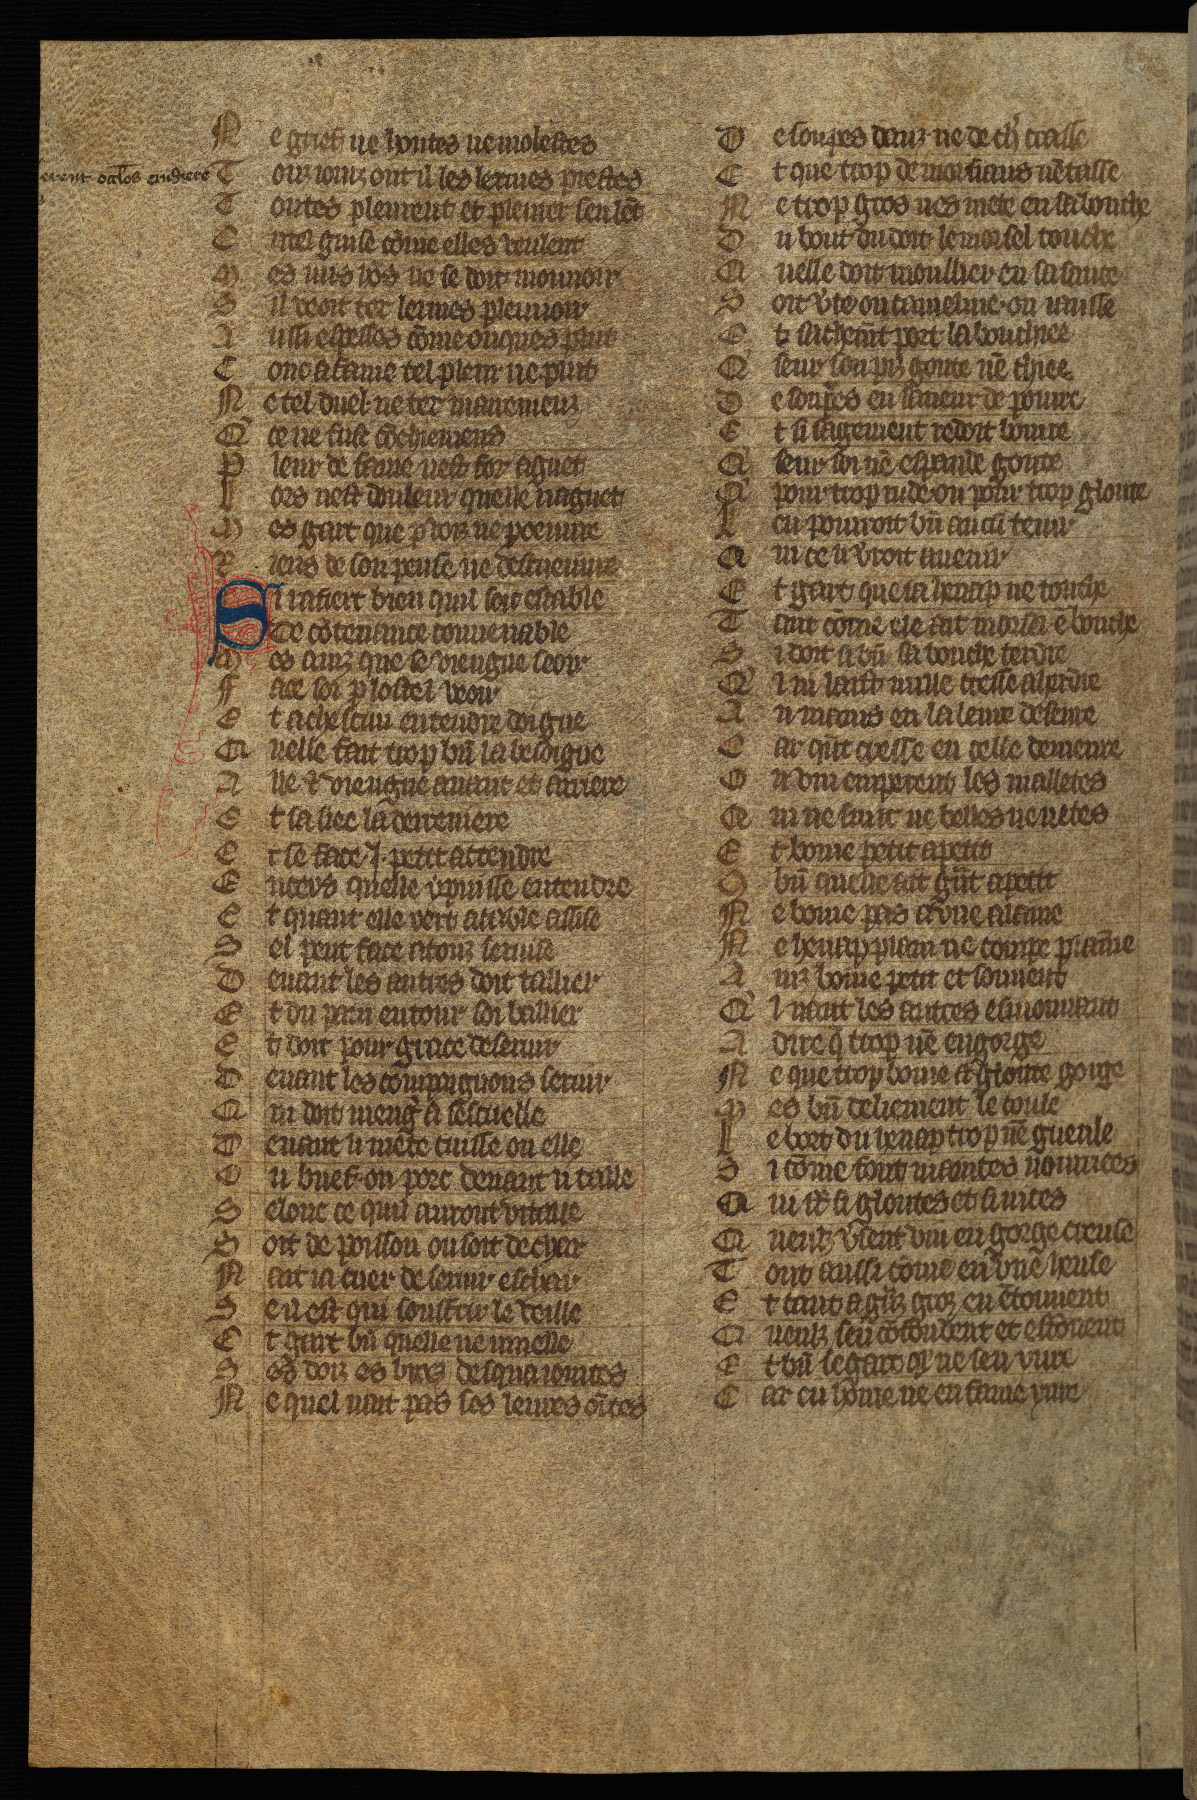 erent oclos erudiere
Ne grief ne hontes ne molestes
Touz iourz ont il les lermes prestes
Toutes pleurent et pleurer seulēt
En tel guise cōme elles veulent
Mes nus hōs ne se doit mouuoir
Sil veoit tex lermes plouuoir
Aussi espesses cōme onques plut
Conc a fame tel pleur ne plut
Ne tel duel ne tex marremenz
Q' ce ne fust cōchiemens
Pleur de fame nest for aguet
Lors nest douleur quelle naguet
Mes gart que p voiz ne p oeuure
Riens de son pense ne descueuure
Si rafiert bien quil soit a table
De cōtenance conuenable
Mes ainz que se viengne seoir
Face soi p lostel veoir
Et a chescun entendre doigne
Quelle fait trop bn̄ la besoigne
Aille et viengne auant et arriere
Et sa siee la derreniere
Et se face .i. petit attendre
Enceys quelle y puisse entendre
Et quant elle yert a table assise
Sel peut face a touz seruise
Deuant les autres doit tallier
Et du pain entour soi ballier
Et doit pour grace deseruir
Deuant les compaignons seruir
Qui doit meng' a sescuelle
Deuant li mete cuisse ou elle
Ou buef ou porc deuant li taille
Selonc ce quil auront vitaille
Soit de poisson ou soit de char
Nait ia cuer de seruir eschar
Se ē est qui souffrir le veille
Et gart bn̄ quelle ne muelle
Ses doiz es broez desqua iointes
Ne quel nait pas ses leures ointes
De soupes dauz ne de ch' crasse
Et que trop de morsiaus nētasse
Ne trop gros nes mete en sa bouche
Du bout du doit le morsel touche
Quelle doit moullier en sa sauce
Soit v'te ou cameline ou iausse
Et sachemāt port la bouchiee
Q' seur son piz goute nē chiee
De soupes en saueur de poiure
Et si sagement redoit boiure
Q' seur soi nē espande goute
Q' pour trop rude ou pour trop gloute
Len pourroit bn̄ aucū tenir
Qui ce li v'roit auenir
Et gart que ia henap ne touche
Tant cōme ele ait morsel ē bouche
Si doit si bn̄ sa bouche terdre
Q'l ni laist nulle cresse aherdre
Au moins en la leure deseure
Car qn̄t cresse en celle demeure
Ou vin emperent les malletes
Qui ne sunt ne belles ne netes
Et boiue petit a petit
Cō bn̄ quelle ait grāt apetit
Ne boiue pas a vne alaine
Ne henap plain ne coupe plaine
Ainz boiue petit et souuent
Q'l naut les autres esmouuant
A dire q̄ trop nē engorge
Ne que trop boiue a gloute gorge
Mes bn̄ delieement le coule
Le bort du henap trop nē gueule
Si cōme font maintes nourrices
Qui sōt si gloutes et si nices
Quenz v'sent vin en gorge creuse
Tout aussi cōme en vne heuse
Et tant a granz gorz en ētonnent
Quenlz sen cōfondent et estonent
Et bn̄ se gart q' ne sen yure
Car en hōme ne en fame yure